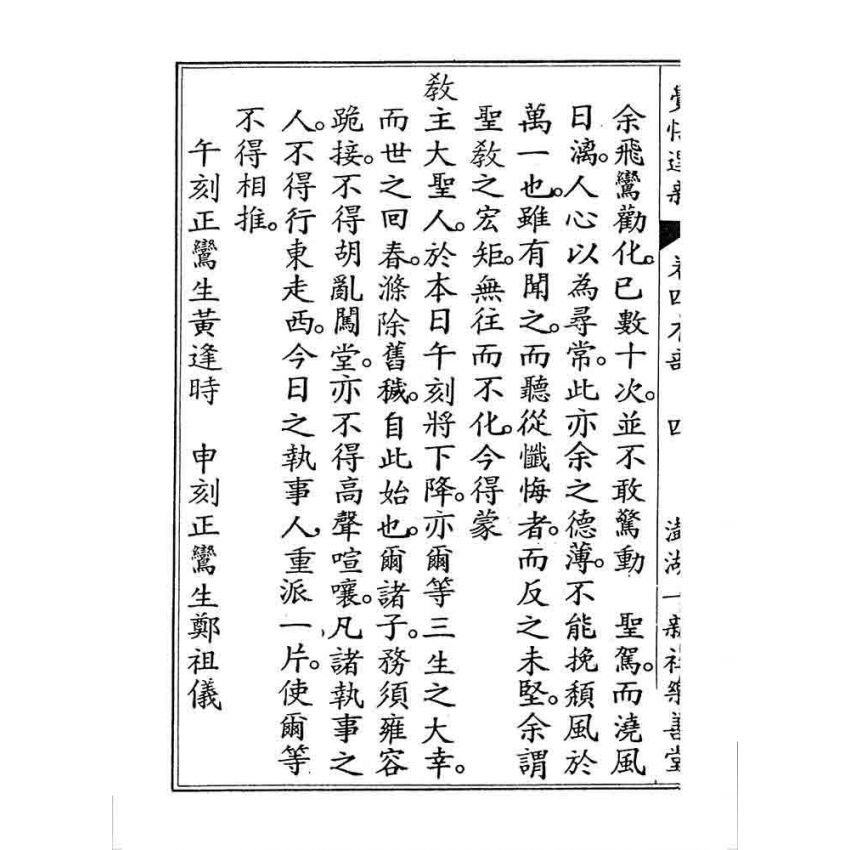 覺悟選新 卷四木部 四 澎湖一新社樂善堂
余飛鸞勸化。已數十次。並不敢驚動 聖駕。而澆風
日漓。人心以為尋常。此亦余之德薄。不能挽頹風於
萬一也。雖有聞之。而聽從懺悔者。而反之未堅。余謂
聖教之宏矩。無往而不化。今得蒙
教主大聖人。於本日午刻將下降。亦爾等三生之大幸。
而世之回春。滌除舊穢。自此始也。爾諸子。務須雍容
跪接。不得胡亂闖堂。亦不得高聲喧嚷。凡諸執事之
人。不得行東走西。今日之執事人，重派一片。使爾等
不得相推。
午刻正鸞生黃逢時 申刻正鸞生鄭祖儀